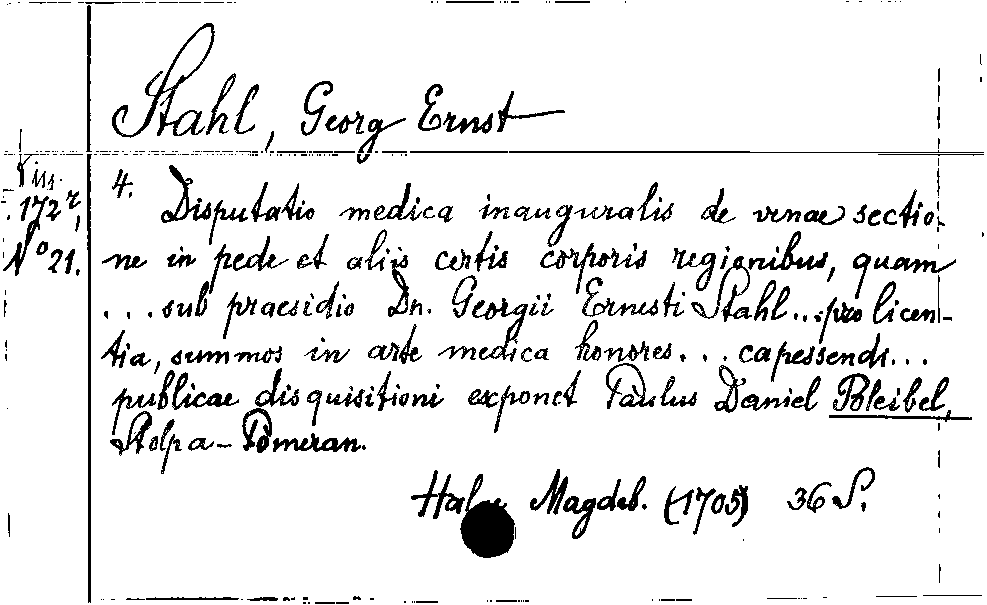 Stahl, Georg Ernst
Diss.
172 r,
No 21.
4. Disputatio medica inauguralis de venae sectio-
ne in pede et aliis certis corporis regionibus, quam
... sub praesidio Dn. Georgii Ernesti Stahl ... pro licen-
tia, summos in arte medica honores ... capessendi ...
publicae disquisitioni exponet Paulus Daniel Bleibel,
Stolpa-Pomeran.
Halae Magdeb. (1705) 36 S.